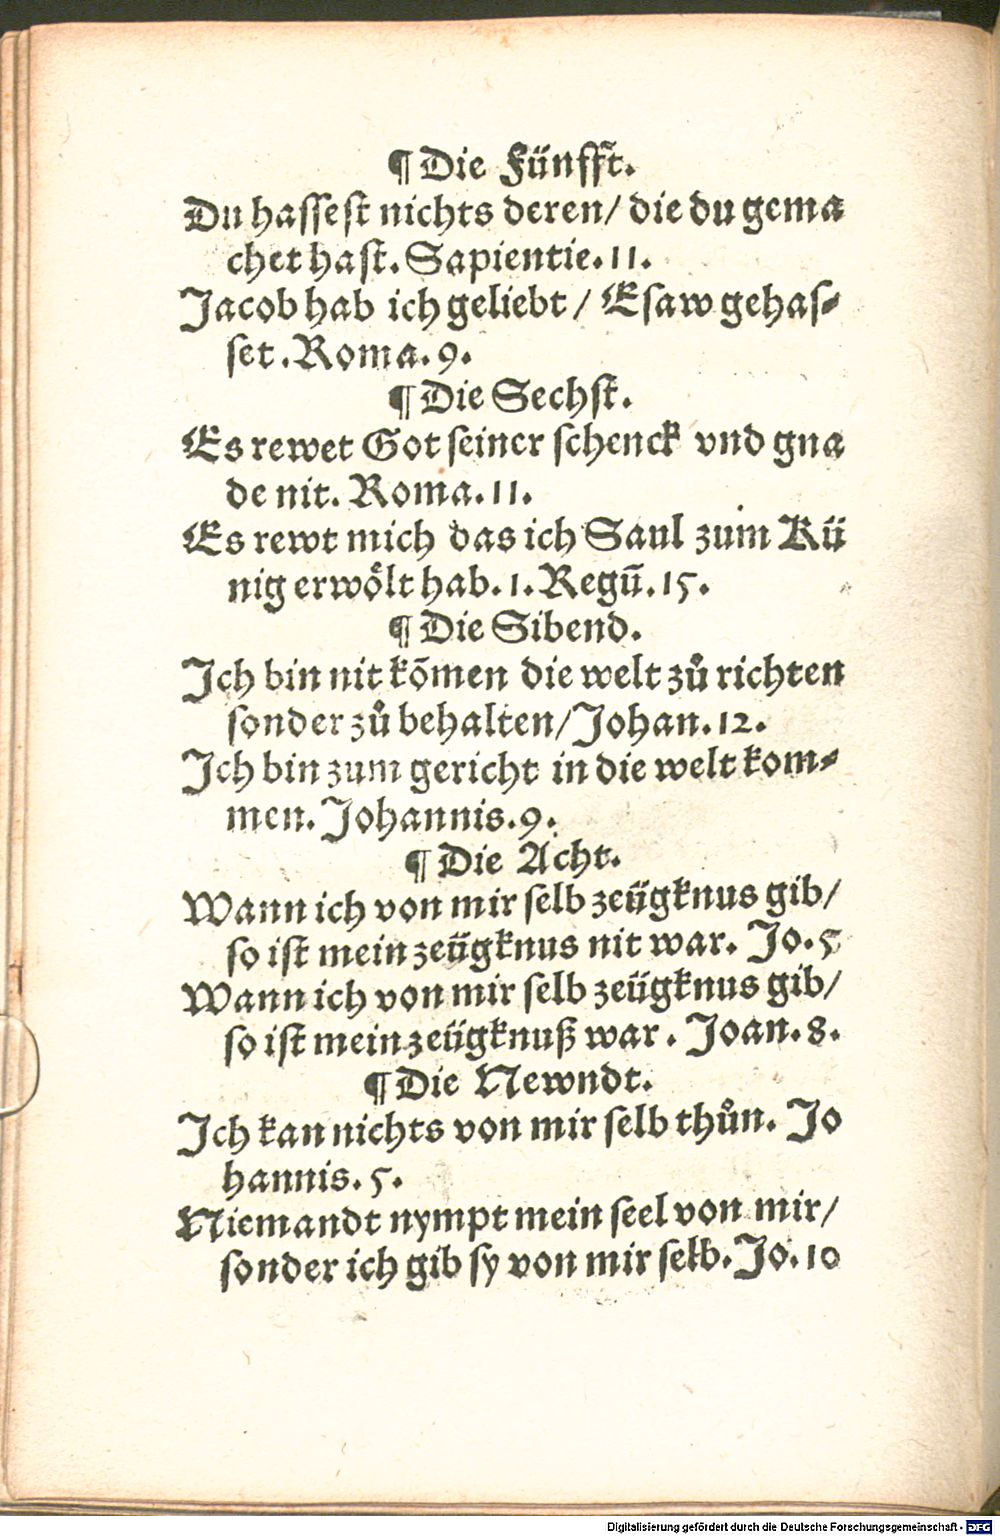 ¶ Die Fünfft.
Du hassest nichts deren/ die du gema
chet hast. Sapientie. 11.
Jacob hab ich geliebt / Esaw gehas⸗
set. Roma. 9.
¶ Die Sechst.
Es rewet Got seiner schenck vnd gna
de nit. Roma. 11.
Es rewt mich das ich Saul zum Kü
nig erwoͤlt hab. 1. Regū. 15.
¶ Die Sibend.
Ich bin nit kōmen die welt zuͦ richten
sonder zuͦ behalten/ Johan. 12.
Ich bin zum gericht in die welt kom⸗
men. Johannis. 9.
¶ Die Acht.
Wann ich von mir selb zeügknus gib/
so ist mein zeügknus nit war. Jo. 5
Wann ich von mir selb zeügknus gib/
so ist mein zeügknuß war. Joan. 8.
¶ Die Newndt.
Ich kan nichts von mir selb thuͦn. Jo
hannis. 5.
Niemandt nympt mein seel von mir/
sonder ich gib sy von mir selb. Jo. 10
Digitalisierung gefördert durch die Deutsche Forschungsgemeinschaft - DFG